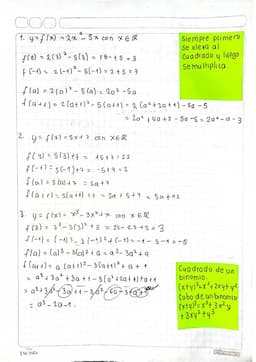 1. y = f(x) = 2x² - 5x con x∈ℝ
f(3) = 2(3)² - 5(3) = 18 - 15 = 3
f(-1) = 2(-1)² - 5(-1) = 2 + 5 = 7
f(a) = 2(a)² - 5(a) = 2a² - 5a
f(a+1) = 2(a+1)² - 5(a+1) = 2(a²+2a+1) - 5a - 5
= 2a² + 4a + 2 - 5a - 5 = 2a² - a - 3
Siempre primero
se eleva al
cuadrado y luego
se multiplica.
2. y = f(x) = 5x + 7 con x∈ℝ
f(3) = 5(3) + 7 = 15 + 7 = 22
f(-1) = 5(-1) + 7 = -5 + 7 = 2
f(a) = 5(a) + 7 = 5a + 7
f(a+1) = 5(a+1) + 7 = 5a + 5 + 7 = 5a + 12
3. y = f(x) = x³ - 3x² + x con x∈ℝ
f(3) = 3³ - 3(3)² + 3 = 27 - 27 + 3 = 3
f(-1) = (-1)³ - 3(-1)² + (-1) = -1 - 3 - 1 = -5
f(a) = (a)³ - 3(a)² + a = a³ - 3a² + a
f(a+1) = a(a+1)³ - 3(a+1)² + a + 1
= a³ + 3a² + 3a + 1 - 3(a² + 2a + 1) + a + 1
= a³ + 3a² + 3a + 1 - 3a² - 6a - 3 + a + 1
= a³ - 2a - 1.
Cuadrado de un
binomio.
(x+y)² = x² + 2xy + y²
Cubo de un binomio
(x+y)³ = x³ + 3x²y
+ 3xy² + y³